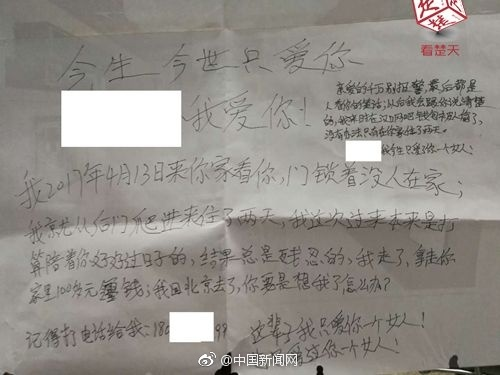 看楚天
今生今世只爱你
我爱你!
亲爱的千万别报警,最后都是
人看你的笑话;以后我会跟你说清楚
的,我来时在汉口网吧钱包被人偷了,
没有办法只有在你家住了两天。
我今生只爱了你一个女人!
我2017年4月13日来你家看你,门锁着没人在家;
我就从后门爬进来住了两天,我这次过来本来是打
算陪着你好好过日子的,结果总是残忍的,我走了,拿走你
家里100多元零钱;我回北京去了,你要是想我了怎么办?
记得打电话给我:180 99
这辈子我只爱你一个女人!
只爱你一个女人!
@中国新闻网